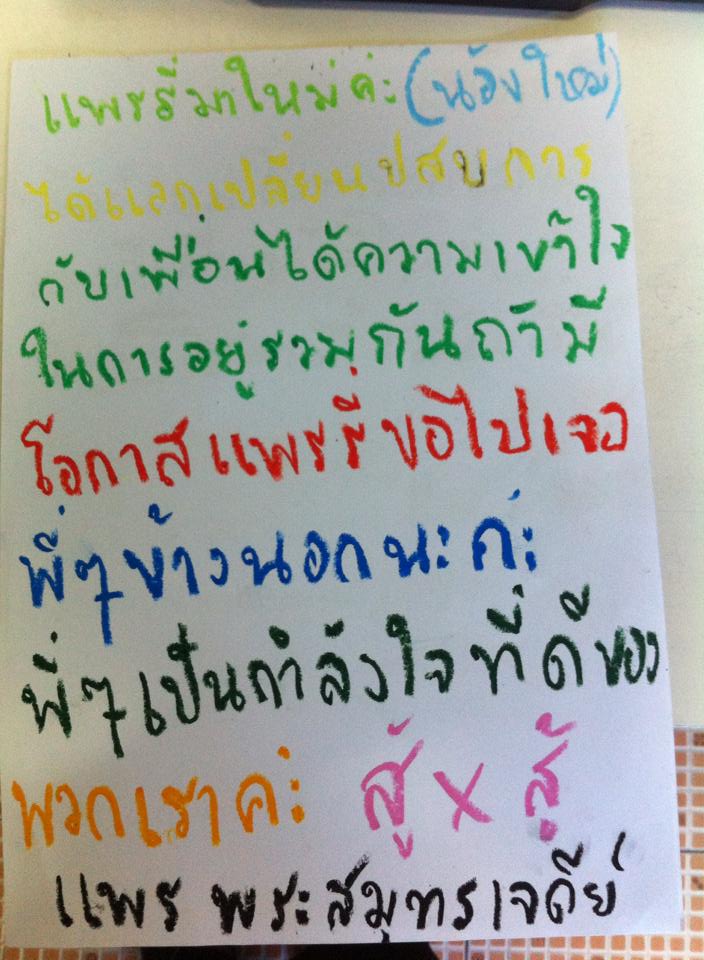 แพรรี่มาใหม่ค่ะ (น้องใหม่)
ได้แลกเปลี่ยนปสบการ
กับเพื่อนได้ความเข้าใจ
ในการอยู่รวมกันถ้ามี
โอกาสแพรรี่ขอไปเจอ
พี่ๆข้างนอกนะค่ะ
พี่ๆเป็นกำลังใจที่ดีของ
พวกเราค่ะ สู้ x สู้
แพร พระสมุทรเจดีย์